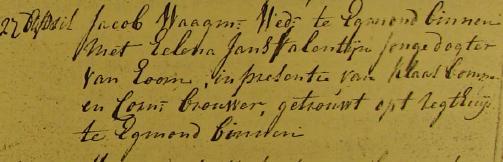 27 April Jacob Waagm: Wed: te Egmond binnen
met Helena Jans Valentijn jonge dogter
van Hoorn, in presente van Klaas
en Corn: Brouwer, getrouwt opt regthuijs
te Egmond binnen